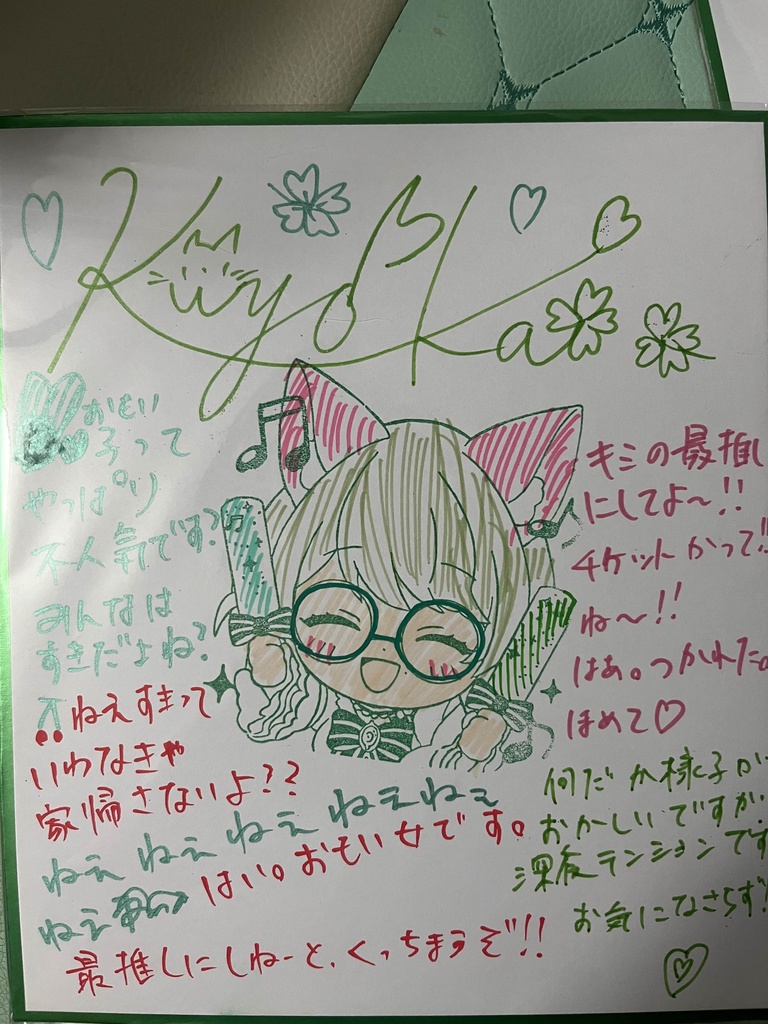 KiyoKa
おもい
子って
やっぱり
不人気です?
みんなは
すきだよね?
ねえすきって
いわなきゃ
家帰さないよ??
ねぇ ねぇ ねぇ ねぇねぇ
ねぇ
はい。おもい女です。
最推しにしねーと、くっちまうぞ!!
キミの最推し
にしてよ〜!!
チケットかって!!
ね〜!!
はあ。つかれた。
ほめて♡
何だか様子が
おかしいですが、
深夜テンションです
お気になさらず!